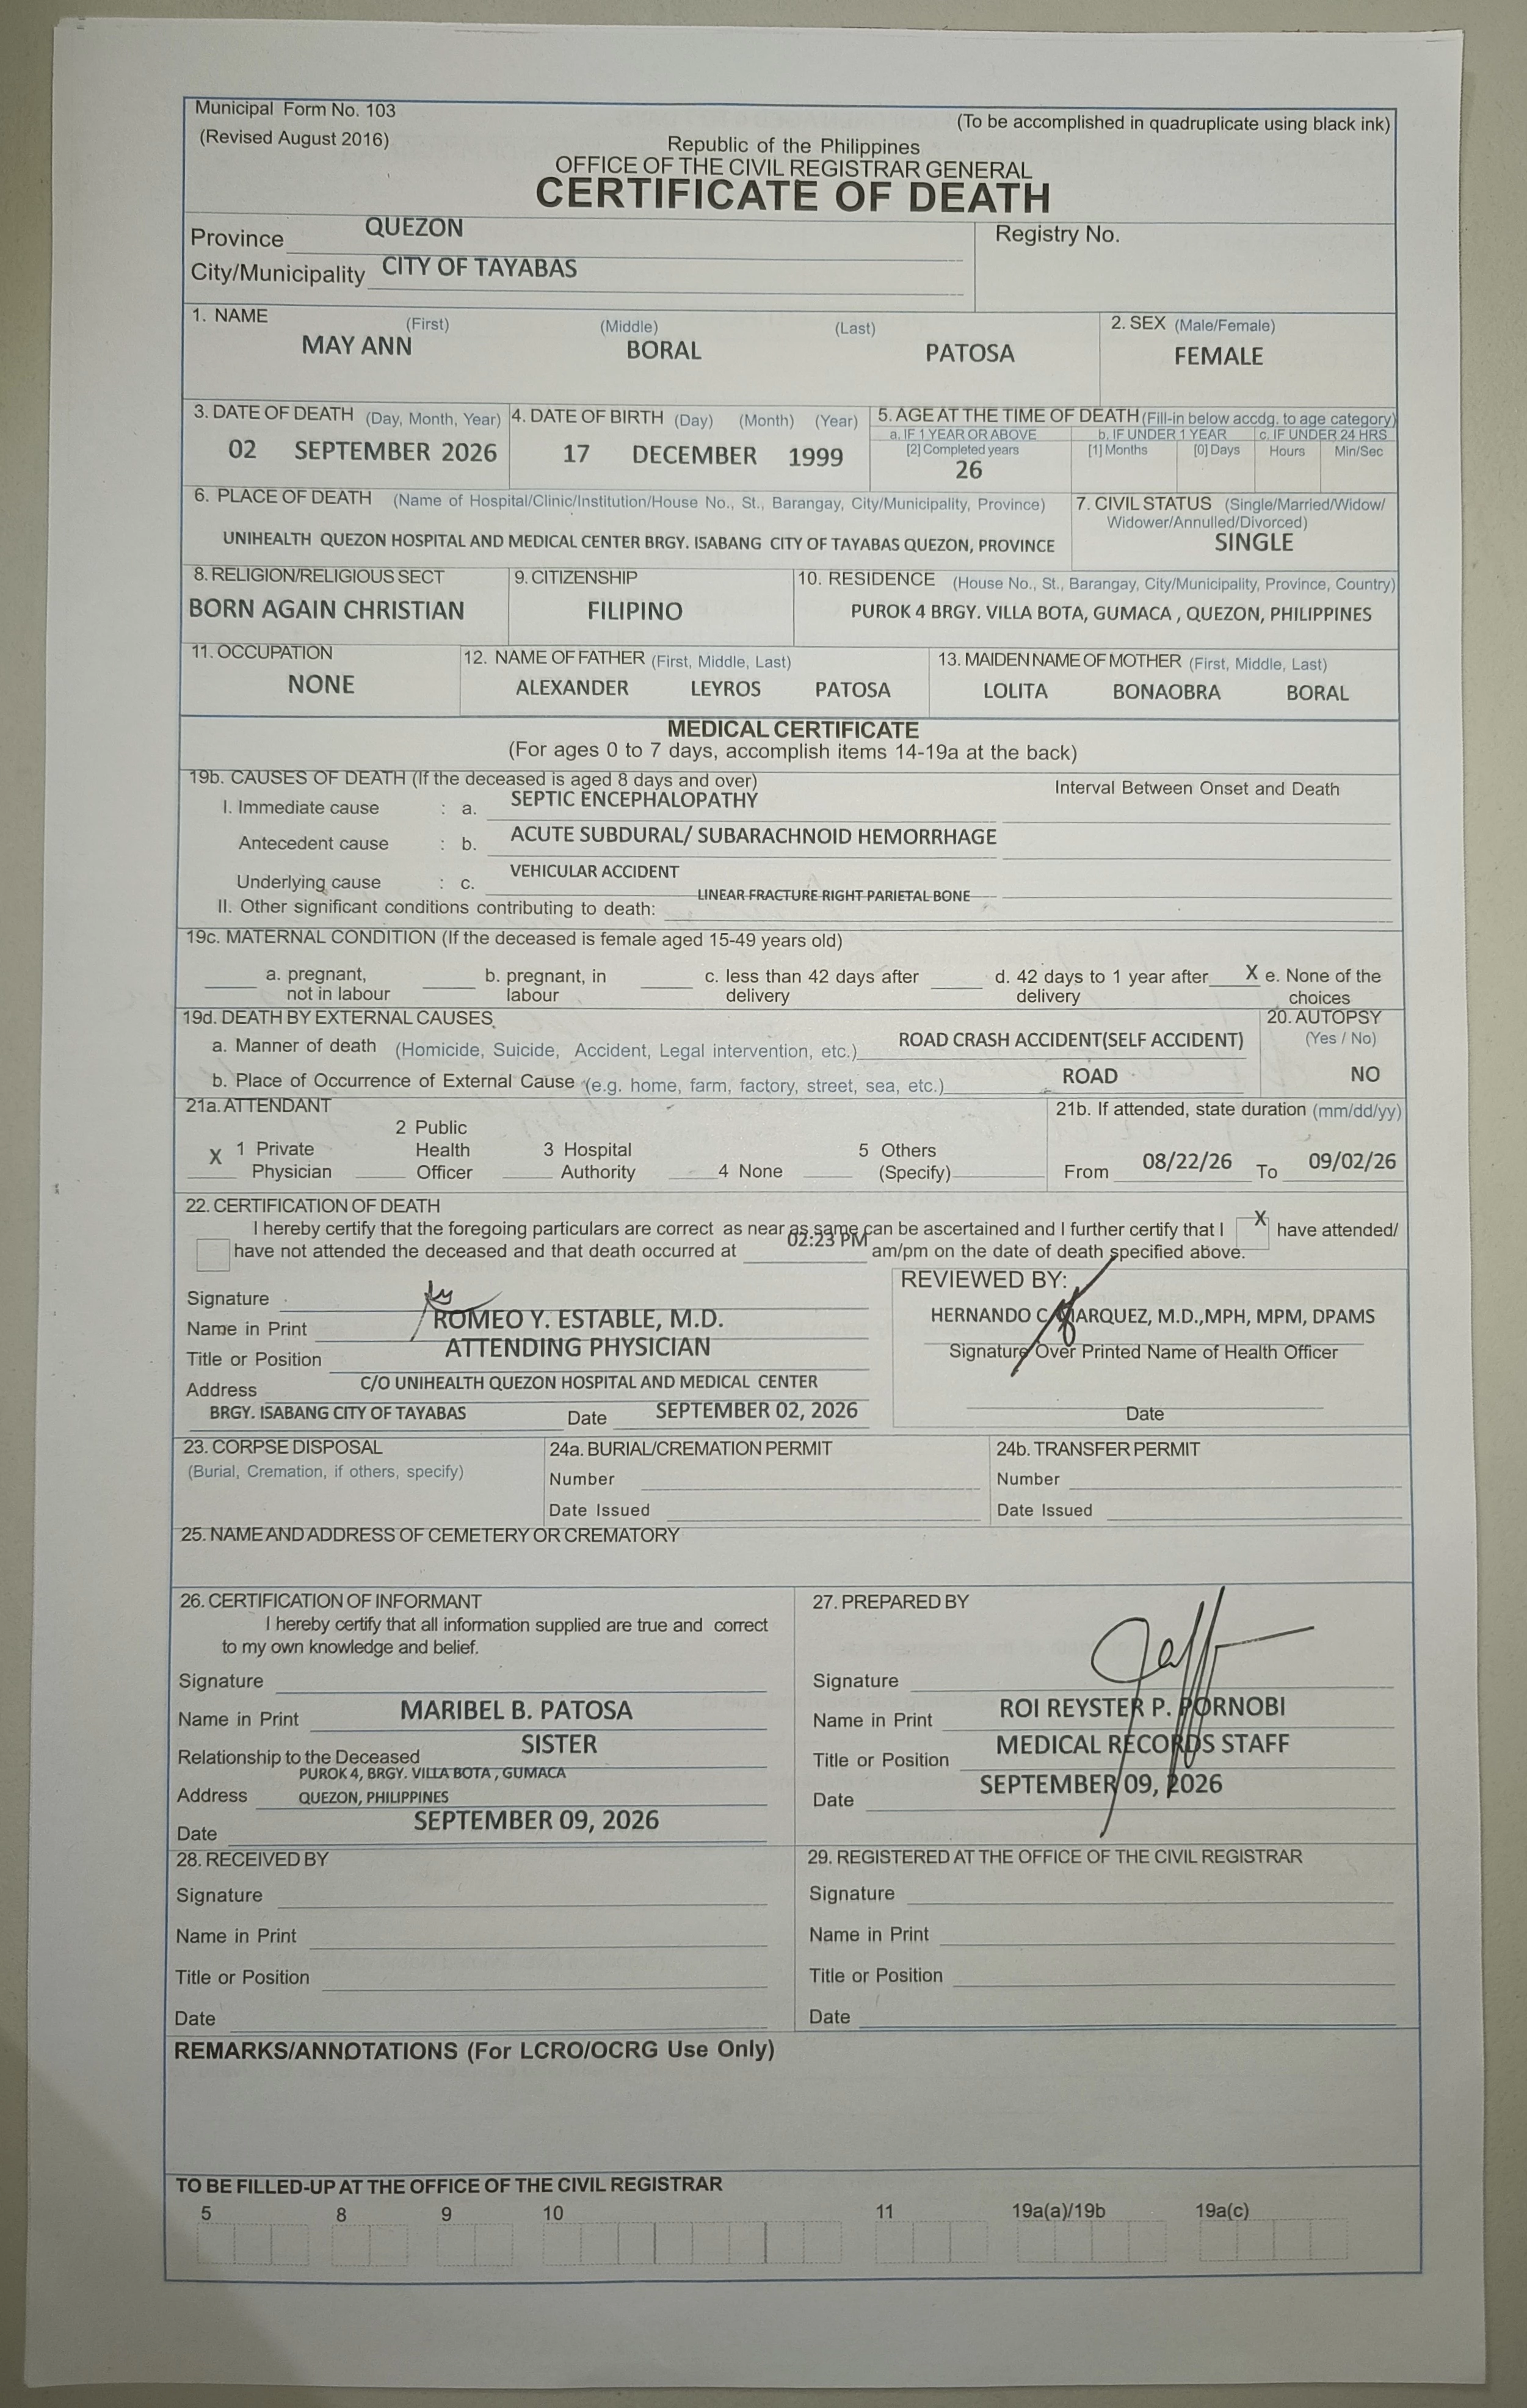 Municipal Form No. 103
(Revised August 2016)
(To be accomplished in quadruplicate using black ink)
Republic of the Philippines
OFFICE OF THE CIVIL REGISTRAR GENERAL
CERTIFICATE OF DEATH
Province QUEZON
Registry No.
City/Municipality CITY OF TAYABAS
1. NAME (First) (Middle) (Last) 2. SEX (Male/Female)
MAY ANN BORAL PATOSA FEMALE
3. DATE OF DEATH (Day, Month, Year) 4. DATE OF BIRTH (Day) (Month) (Year) 5. AGE AT THE TIME OF DEATH (Fill-in below accdg. to age category)
a. IF 1 YEAR OR ABOVE b. IF UNDER 1 YEAR c. IF UNDER 24 HRS
[2] Completed years [1] Months [0] Days Hours Min/Sec
02 SEPTEMBER 2026 17 DECEMBER 1999 26
6. PLACE OF DEATH (Name of Hospital/Clinic/Institution/House No., St., Barangay, City/Municipality, Province) 7. CIVIL STATUS (Single/Married/Widow/
Widower/Annulled/Divorced)
UNIHEALTH QUEZON HOSPITAL AND MEDICAL CENTER BRGY. ISABANG CITY OF TAYABAS QUEZON, PROVINCE SINGLE
8. RELIGION/RELIGIOUS SECT 9. CITIZENSHIP 10. RESIDENCE (House No., St., Barangay, City/Municipality, Province, Country)
BORN AGAIN CHRISTIAN FILIPINO PUROK 4 BRGY. VILLA BOTA, GUMACA , QUEZON, PHILIPPINES
11. OCCUPATION 12. NAME OF FATHER (First, Middle, Last) 13. MAIDEN NAME OF MOTHER (First, Middle, Last)
NONE ALEXANDER LEYROS PATOSA LOLITA BONAOBRA BORAL
MEDICAL CERTIFICATE
(For ages 0 to 7 days, accomplish items 14-19a at the back)
19b. CAUSES OF DEATH (If the deceased is aged 8 days and over) Interval Between Onset and Death
I. Immediate cause : a. SEPTIC ENCEPHALOPATHY
Antecedent cause : b. ACUTE SUBDURAL/ SUBARACHNOID HEMORRHAGE
Underlying cause : c. VEHICULAR ACCIDENT
II. Other significant conditions contributing to death: LINEAR FRACTURE RIGHT PARIETAL BONE
19c. MATERNAL CONDITION (If the deceased is female aged 15-49 years old)
a. pregnant, b. pregnant, in c. less than 42 days after d. 42 days to 1 year after X e. None of the
not in labour labour delivery delivery choices
19d. DEATH BY EXTERNAL CAUSES 20. AUTOPSY
a. Manner of death (Homicide, Suicide, Accident, Legal intervention, etc.) ROAD CRASH ACCIDENT(SELF ACCIDENT) (Yes / No)
b. Place of Occurrence of External Cause (e.g. home, farm, factory, street, sea, etc.) ROAD NO
21a. ATTENDANT 21b. If attended, state duration (mm/dd/yy)
2 Public
X 1 Private Health 3 Hospital 5 Others
Physician Officer Authority 4 None (Specify) From 08/22/26 To 09/02/26
22. CERTIFICATION OF DEATH
I hereby certify that the foregoing particulars are correct as near as same can be ascertained and I further certify that I X have attended/
have not attended the deceased and that death occurred at 02:23 PM am/pm on the date of death specified above.
Signature
REVIEWED BY:
Name in Print ROMEO Y. ESTABLE, M.D. HERNANDO C. MARQUEZ, M.D.,MPH, MPM, DPAMS
Title or Position ATTENDING PHYSICIAN Signature Over Printed Name of Health Officer
Address C/O UNIHEALTH QUEZON HOSPITAL AND MEDICAL CENTER
BRGY. ISABANG CITY OF TAYABAS Date SEPTEMBER 02, 2026 Date
23. CORPSE DISPOSAL 24a. BURIAL/CREMATION PERMIT 24b. TRANSFER PERMIT
(Burial, Cremation, if others, specify) Number Number
Date Issued Date Issued
25. NAME AND ADDRESS OF CEMETERY OR CREMATORY
26. CERTIFICATION OF INFORMANT
I hereby certify that all information supplied are true and correct
to my own knowledge and belief.
Signature
Name in Print MARIBEL B. PATOSA
Relationship to the Deceased SISTER
PUROK 4, BRGY. VILLA BOTA , GUMACA
Address QUEZON, PHILIPPINES
Date SEPTEMBER 09, 2026
27. PREPARED BY
Signature
Name in Print ROI REYSTER P. PORNOBI
Title or Position MEDICAL RECORDS STAFF
Date SEPTEMBER 09, 2026
28. RECEIVED BY
Signature
Name in Print
Title or Position
Date
29. REGISTERED AT THE OFFICE OF THE CIVIL REGISTRAR
Signature
Name in Print
Title or Position
Date
REMARKS/ANNOTATIONS (For LCRO/OCRG Use Only)
TO BE FILLED-UP AT THE OFFICE OF THE CIVIL REGISTRAR
5 8 9 10 11 19a(a)/19b 19a(c)